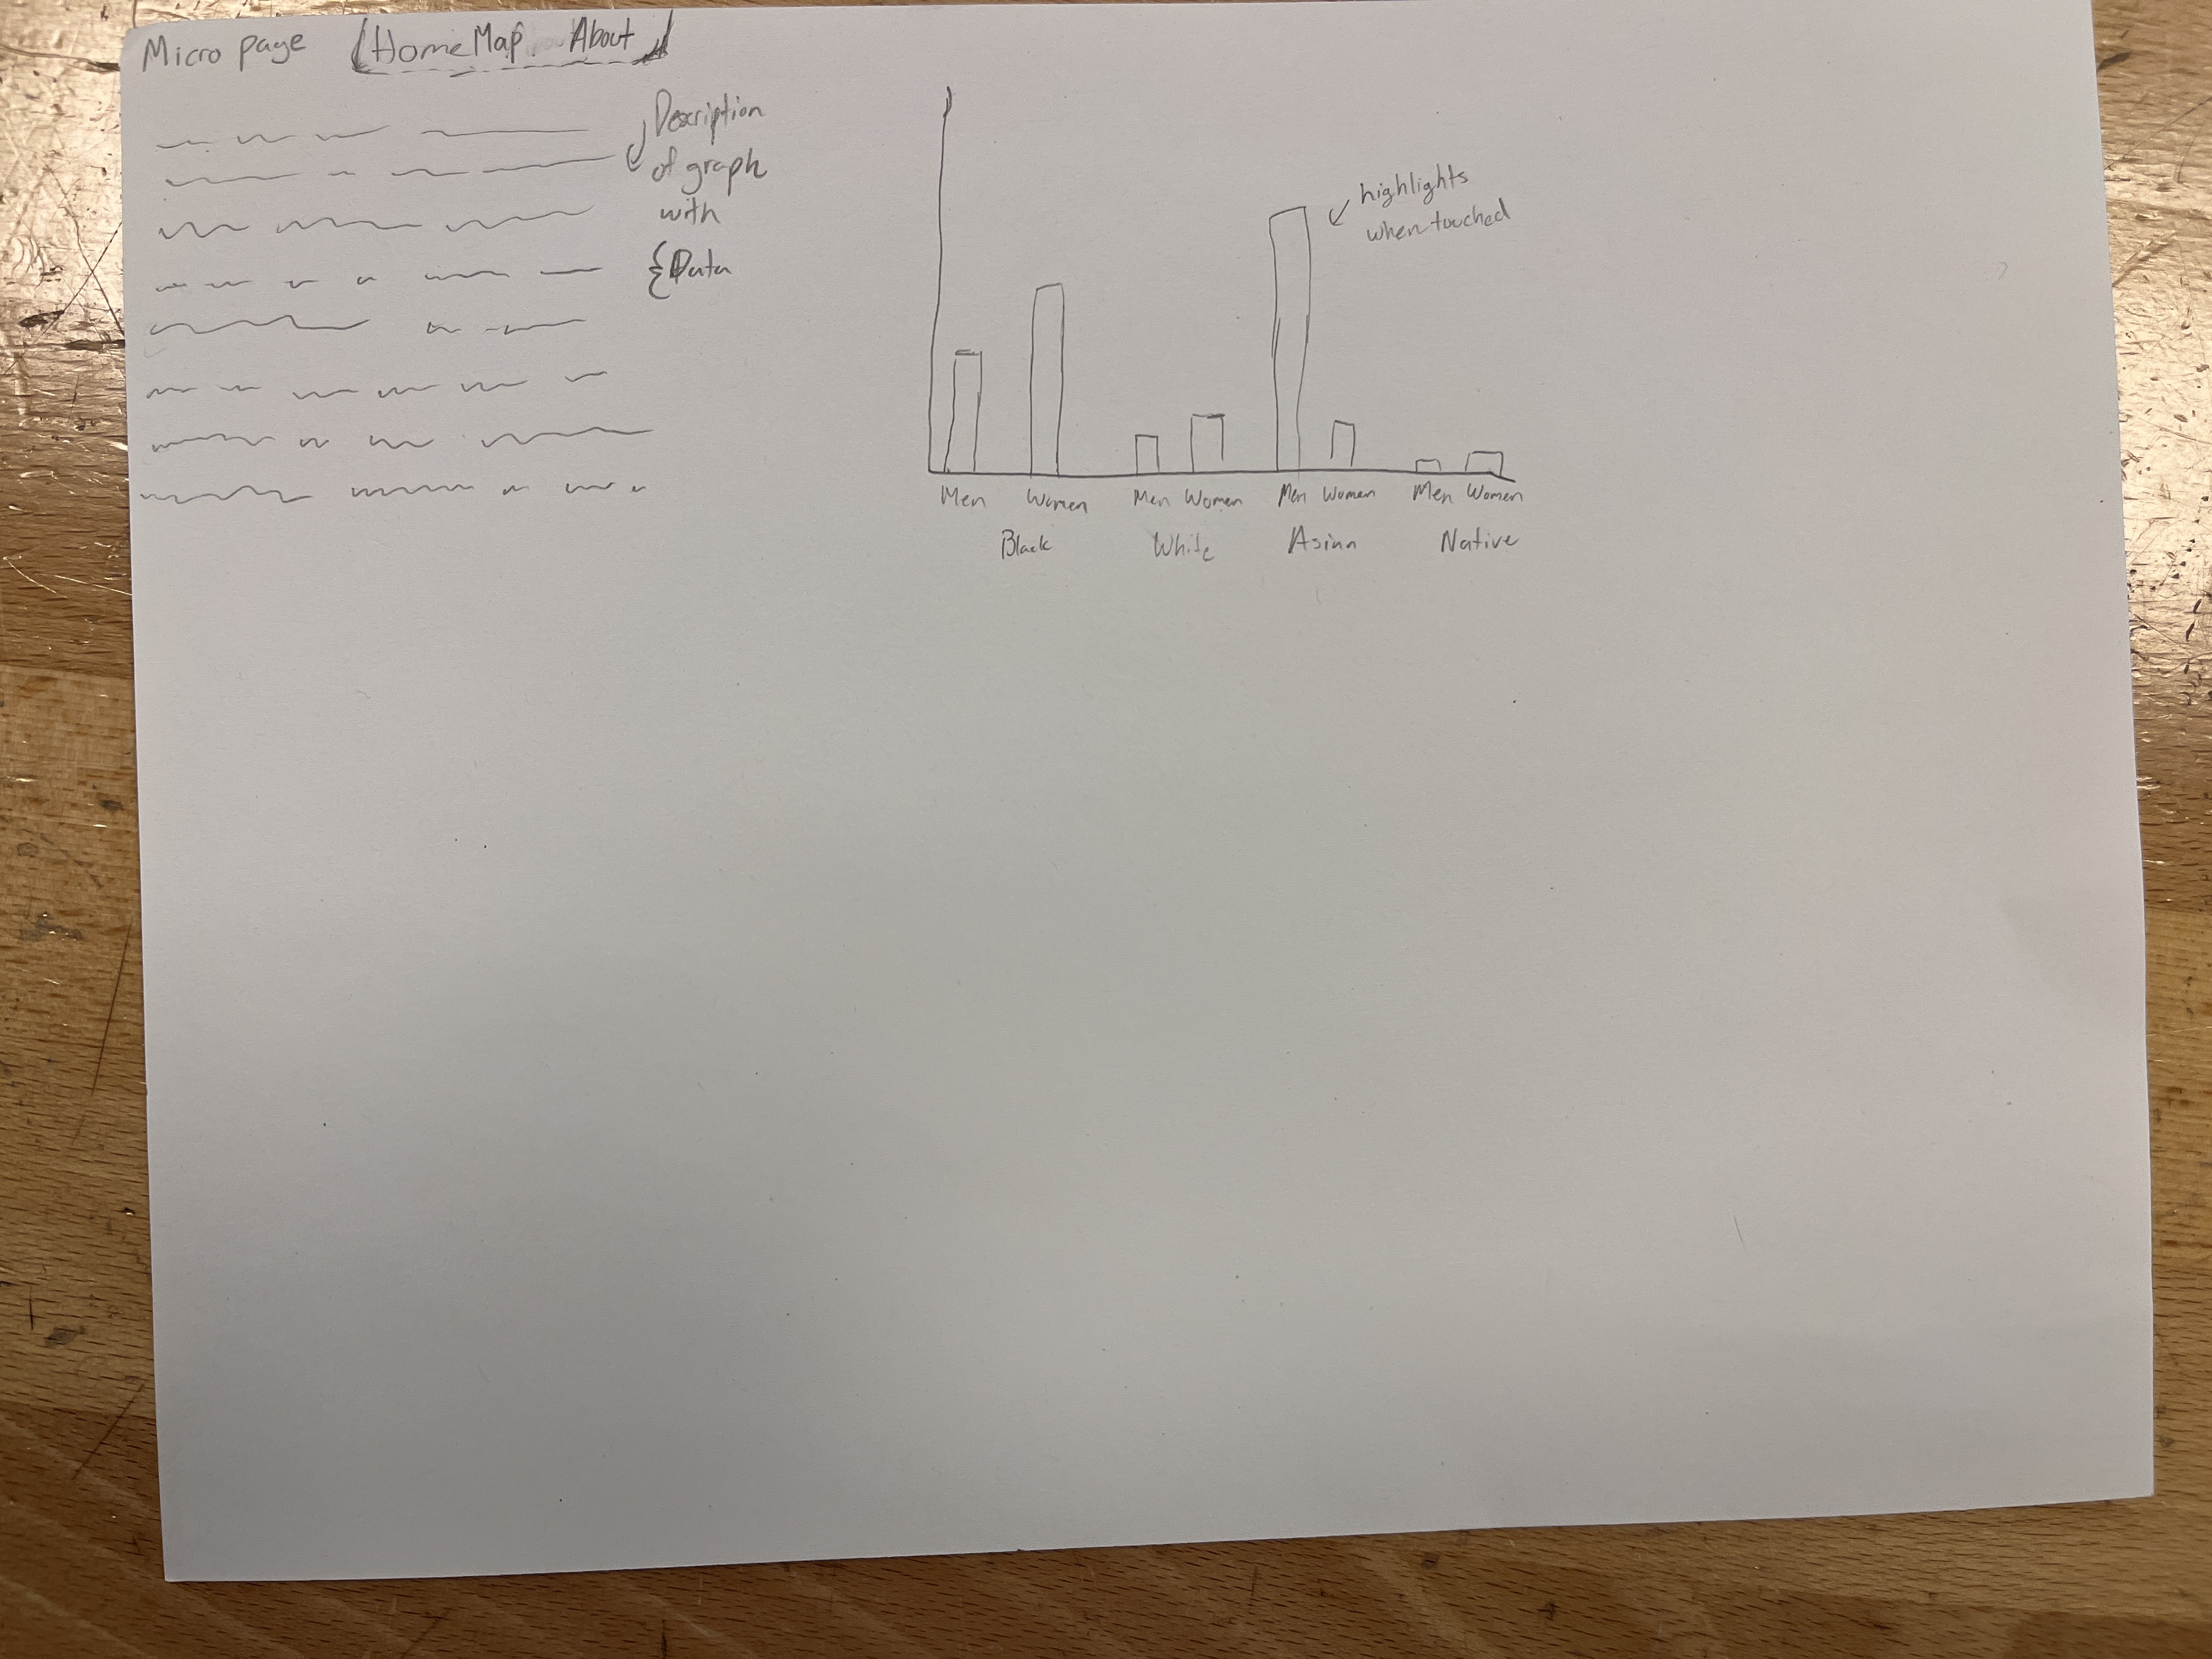 Micro page (Home Map About)
Description
of graph
with
{Data
highlights
when touched
Men Women Men Women Men Women Men Women
Black White Asian Native